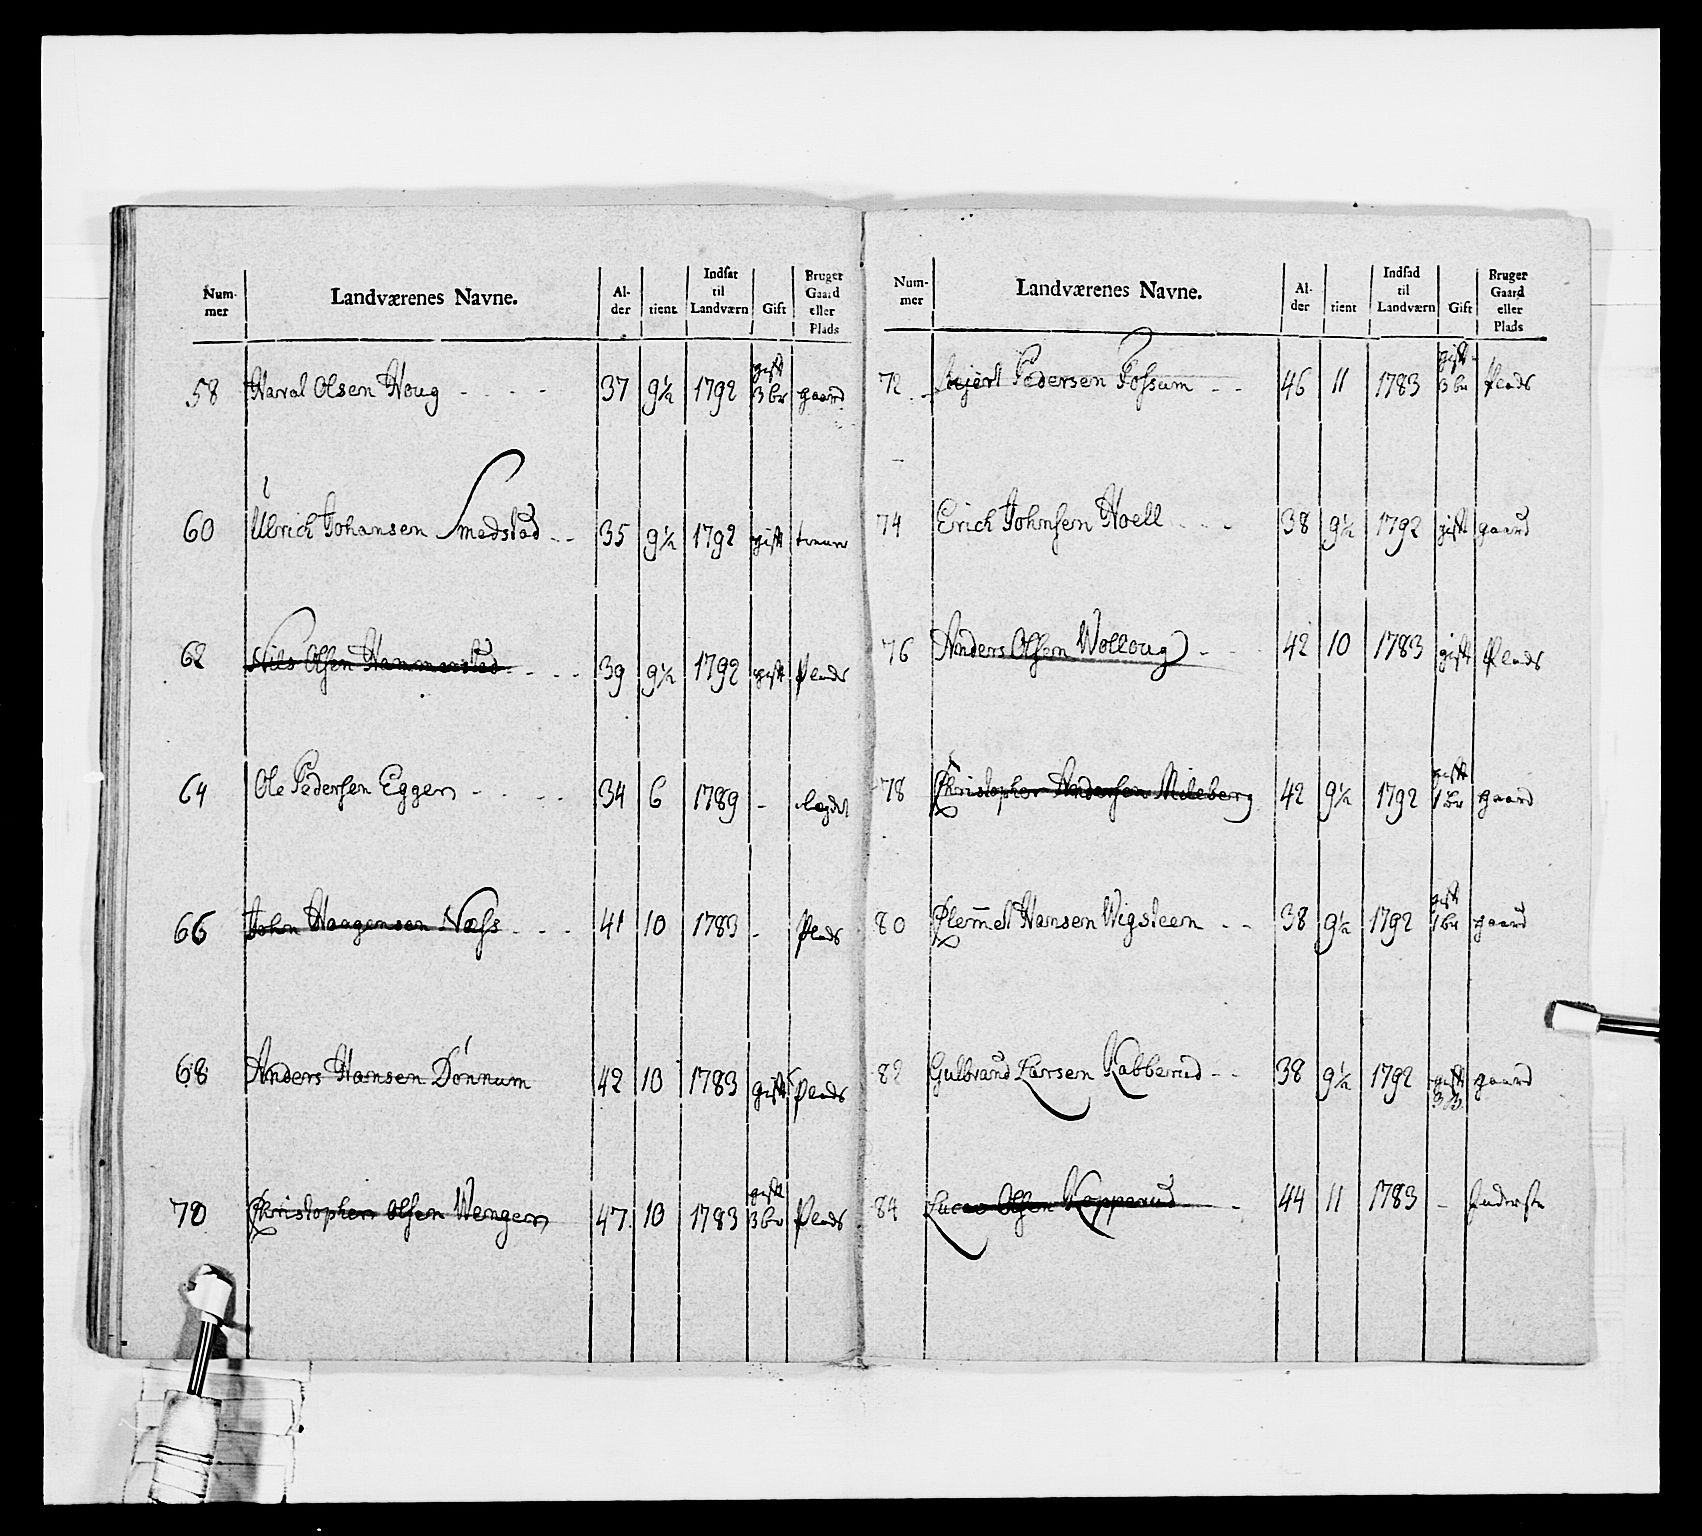 Num-
mer
Landværenes Navne.
Al-
der
tient
Indsat
til
Landværn
Gift
Bruger
Gaard
eller
Plads
58 Haral Olsen Houg - - - - 37 9½ 1792 gift 3 br gaard
60 Ulrich Johansen Smedstad - - 35 9½ 1792 gift
62 Nils Olsen Hammerstad - - - 39 9½ 1792 gift Plads
64 Ole Pedersen Eggen - - - - 34 6 1789 -
66 John Haagensen Næss - - - 41 10 1783 - Plads
68 Anders Hansen Dönnum 42 10 1783 gift Plads
70 Christopher Olsen Wengen 47 10 1783 gift 3 br Plads
Num-
mer
Landværenes Navne.
Al-
der
tient
Indsad
til
Landværn
Gift
Bruger
Gaard
eller
Plads
72 Pedersen Fossum - - 46 11 1783 gift 3 br Plads
74 Erich Johnsen Hoell - - - 38 9½ 1792 gift gaard
76 Anders Olsen Wolloug - - 42 10 1783 gift Plads
78 Christopher Andersen Mileberg 42 9½ 1792 gift 1 br gaard
80 Clem̄et Hansen Wigsteen - - 38 9½ 1792 gift 1 br gaard
82 Gulbrand Larsen Kabberud - - 38 9½ 1792 gift 3 B. gaard
84 Lucas Olsen Kopperud - 44 11 1783 -